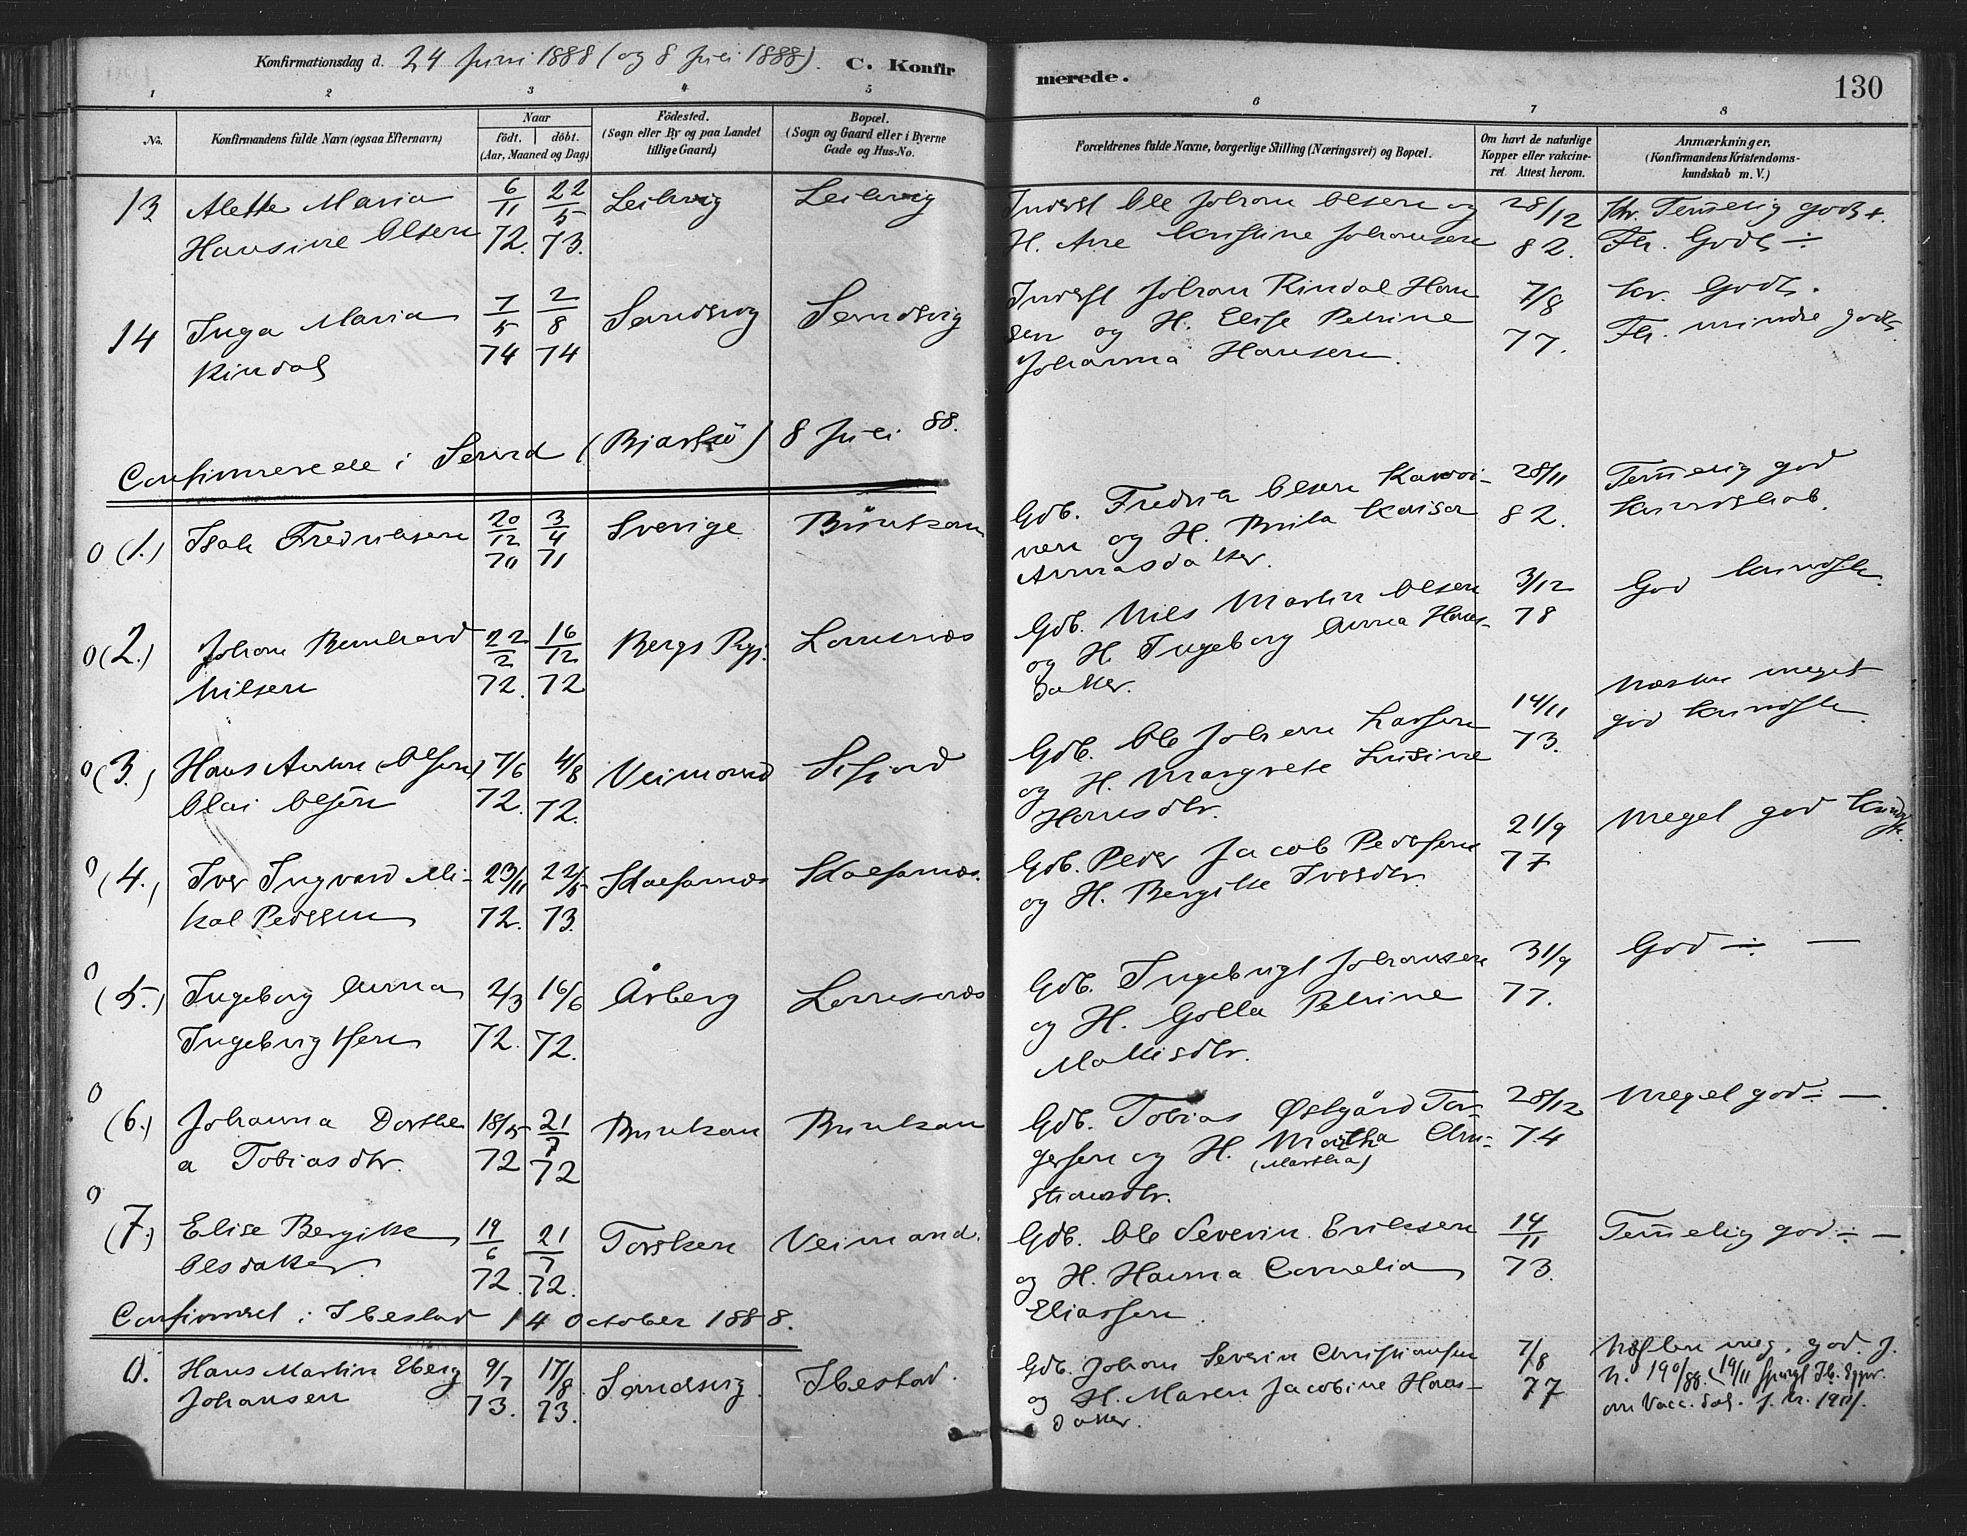 Konfirmationsdag d. 24 Juni 1888 (og 8 Juli 1888). C. Konfir
merede. 130
1 2 3 4 5 6 7 8
No. Konfirmandens fulde Navn (ogsaa Efternavn) Naar født. døbt. (Aar, Maaned og Dag) Fødested. (Sogn eller By og paa Landet tillige Gaard) Bopæl. (Sogn og Gaard eller i Byerne Gade og Hus-No. Forældrenes fulde Navne, borgerlige Stilling (Næringsvei) og Bopæl. Om havt de naturlige Kopper eller vaccineret. Attest herom. Anmærkninger. (Konfirmandens Kristendomskundskab m. V.)
13 Alette Maria 6/11 22/5 Leikvig Leikvig Inderst Ole Johan Olsen og 28/12 Kr. Temmelig godt +.
Hansine Olsen 72. 73. H. Ane Kristine Johansen 82. Fl. Godt ÷
14 Inga Maria 7/5 2/8 Sandsvig Sandsvig Inderst Johan Rindal Han 7/8 Kr. Godt.
Rindal 74 74 sen og H. Elise Petrine 77. Fl. mindre godt
Johanna Hansen.
Confirmerede i (Bjarkø) 8 Juli 88.
0 (1.) Isak Fredriksen 20/12 70 3/4 71 Sverige Gdb. Fredrik Olsen 28/11 Temmelig god
og H. Brita 82. Kundskab.
0 (2.) Johan Bernhard 22/2 16/12 Bergs Lanesnæs Gdb. Nils Martin Olsen 3/12 God Kundsk.
Nilsen 72. 72 og H. Ingeborg Anna Hans- 78
datter.
0 (3.) Hans 7/6 4/8 Veimand Sifjord Gdb. Ole Johan Larsen 14/11 Næsten meget
Olai Olsen 72. 72. og H. Margrete Lusine 73. god Kundsk.
Hansdtr.
0 (4.) Iver Ingvard Mi- 23/11 22/5 Skalfarnæs Skalfarnæs. Gdb. Peder Jacob Pedersen 21/9 Meget god Kundsk.
kal Pedersen 72. 73. og H. Bergitte Iversdtr. 77
0 (5.) Ingeborg Anna 2/3 16/6 Årberg Lanesnæs Gdb. Ingebrigt Johansen 31/9 God ÷ —
Ingebrigtsen 72. 72. og H. Golla Petrine 77.
Mattisdtr.
0 (6.) Johanna Dorthe 18/5 21/7 Gdb. Tobias Østgård Tor- 28/12 Meget god ÷ —
a Tobiasdtr. 72 72 gersen og H. Martha Chri- 74
(Martha)
stiansdtr.
0 (7.) Elise Bergitte 19/6 21/7 Torsken Veimand. Gdb. Ole Severin Eriksen 14/11 Temmelig god ÷ —
Olsdatter 72. 72. og H. Hanna Cornelia 73.
Eliassen
Confirmeret i Ibestad 14 October 1888.
0. Hans Martin Eberg 9/7 17/8 Sandsvig. Ibestad. Gdb. Johan Severin Christiansen 7/8 Næsten meg. god. J.
Johansen 73. 73. og H. Maren Jacobine Hans- 77 N. 190/88.
datter. om Vacc.